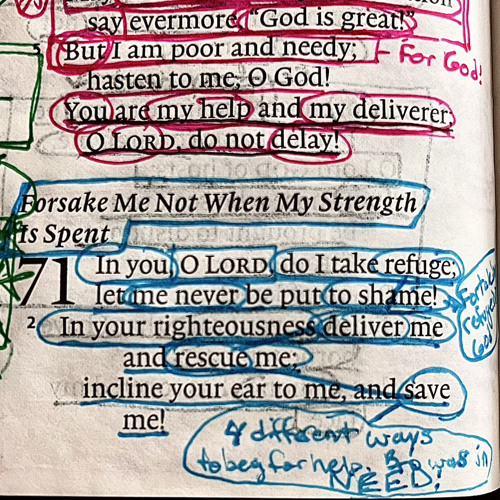 say evermore, "God is great!"
5 But I am poor and needy; - For God!
hasten to me, O God!
You are my help and my deliverer;
O LORD, do not delay!
Forsake Me Not When My Strength
Is Spent
71 In you, O LORD, do I take refuge;
let me never be put to shame!
2 In your righteousness deliver me
and rescue me;
incline your ear to me, and save
me!
4 different ways
to beg for help. Bro was in
NEED!